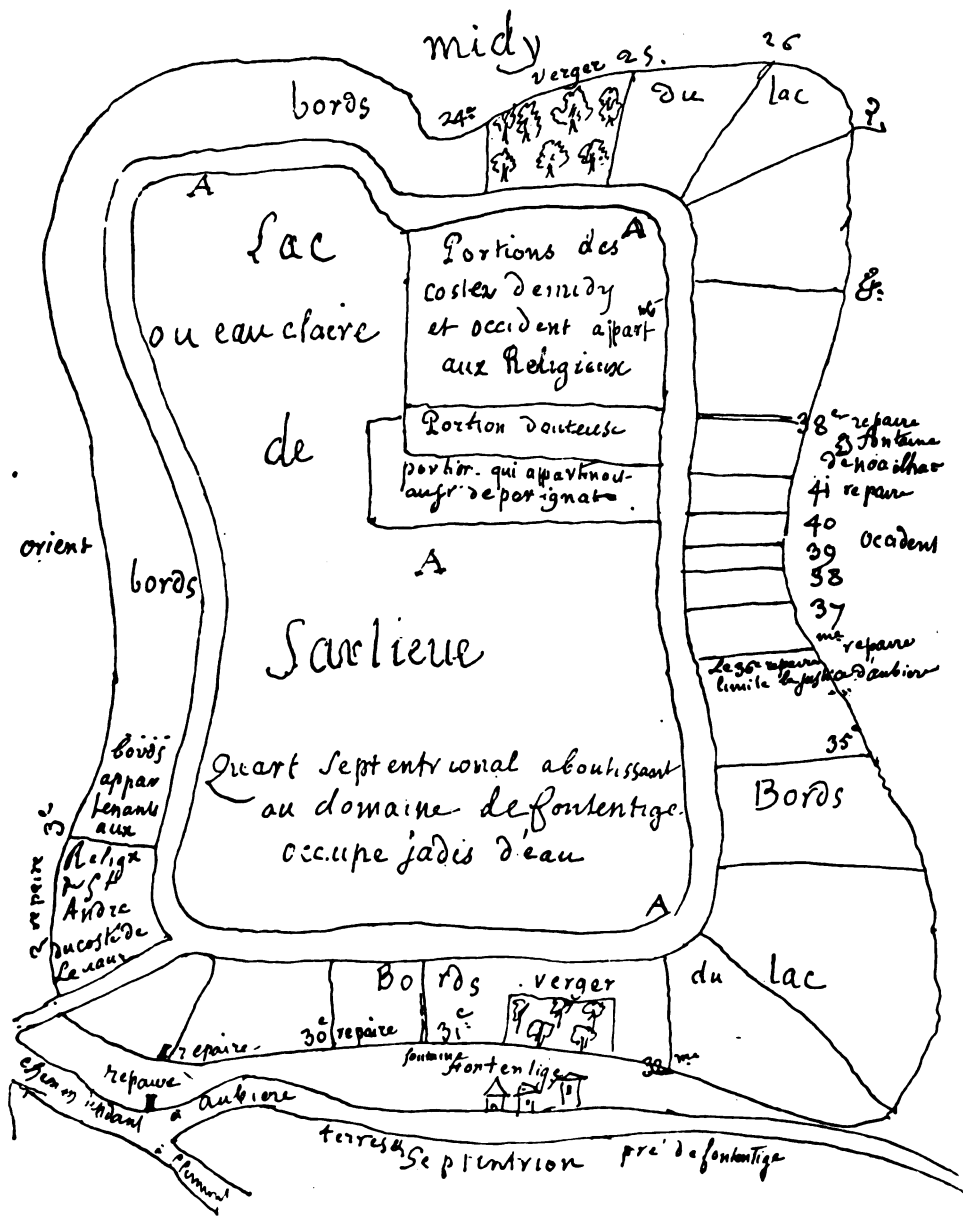 midy
verger 25.
26
24e
bords
du
lac
A
A
Lac
ou eau claire
de
Sarlieue
Portions des
costez de midy
et occident appart
aux Religieux
Portion douteuse
portion qui apartenoit
au sr de perignat
A
orient
bords
38e repaire
fontaine
de noailhat
41 repaire
40
occident
39
38
37
me repaire
Le 36e repaire
limite la justice d'aubiere
35e
Bords
Quart Septentrional aboutissant
au domaine de fontentige
occupe jadis d'eau
A
bords
appar
tenants
aux
Religx
de St
André
du costé de
2 repaire 3e
Bords
verger
du lac
30e repaire
31e
repaire
fontaine
fontentige
32me
repaire
chemin tendant à aubiere
à Clermont
terres et
Septentrion
pré de fontentige